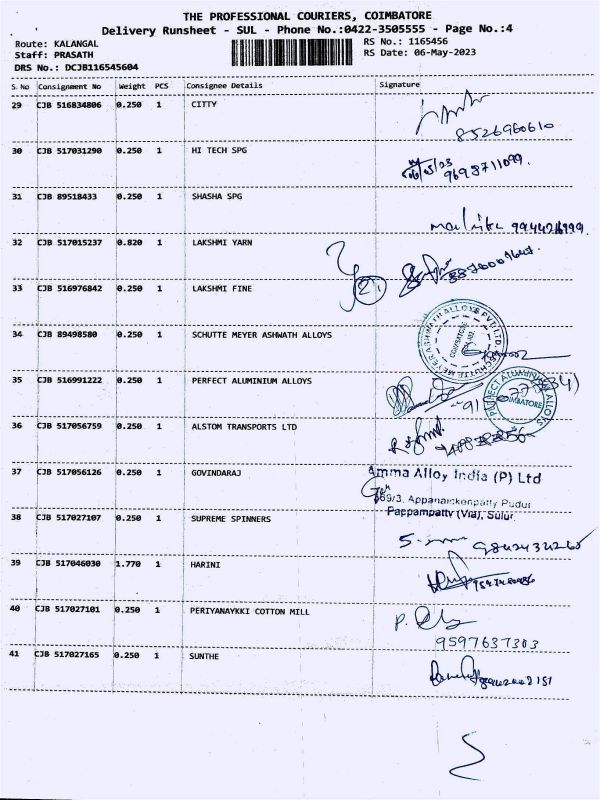 THE PROFESSIONAL COURIERS, COIMBATORE
Delivery Runsheet - SUL - Phone No.:0422-3505555 - Page No.:4
Route: KALANGAL RS No.: 1165456
Staff: PRASATH RS Date: 06-May-2023
DRS No.: DCJB116545604
S. No Consignment No Weight PCS Consignee Details Signature
29 CJB 516834806 0.250 1 CITTY
8526960610
30 CJB 517031290 0.250 1 HI TECH SPG
9698711099.
31 CJB 89518433 0.250 1 SHASHA SPG
32 CJB 517015237 0.820 1 LAKSHMI YARN
33 CJB 516976842 0.250 1 LAKSHMI FINE
34 CJB 89498580 0.250 1 SCHUTTE MEYER ASHWATH ALLOYS
35 CJB 516991222 0.250 1 PERFECT ALUMINIUM ALLOYS
36 CJB 517056759 0.250 1 ALSTOM TRANSPORTS LTD
37 CJB 517056126 0.250 1 GOVINDARAJ
Amma Alloy India (P) Ltd
Pappampatty (Via), Sulur.
38 CJB 517027107 0.250 1 SUPREME SPINNERS
39 CJB 517046030 1.770 1 HARINI
40 CJB 517027101 0.250 1 PERIYANAYKKI COTTON MILL
9597637303
41 CJB 517027165 0.250 1 SUNTHE